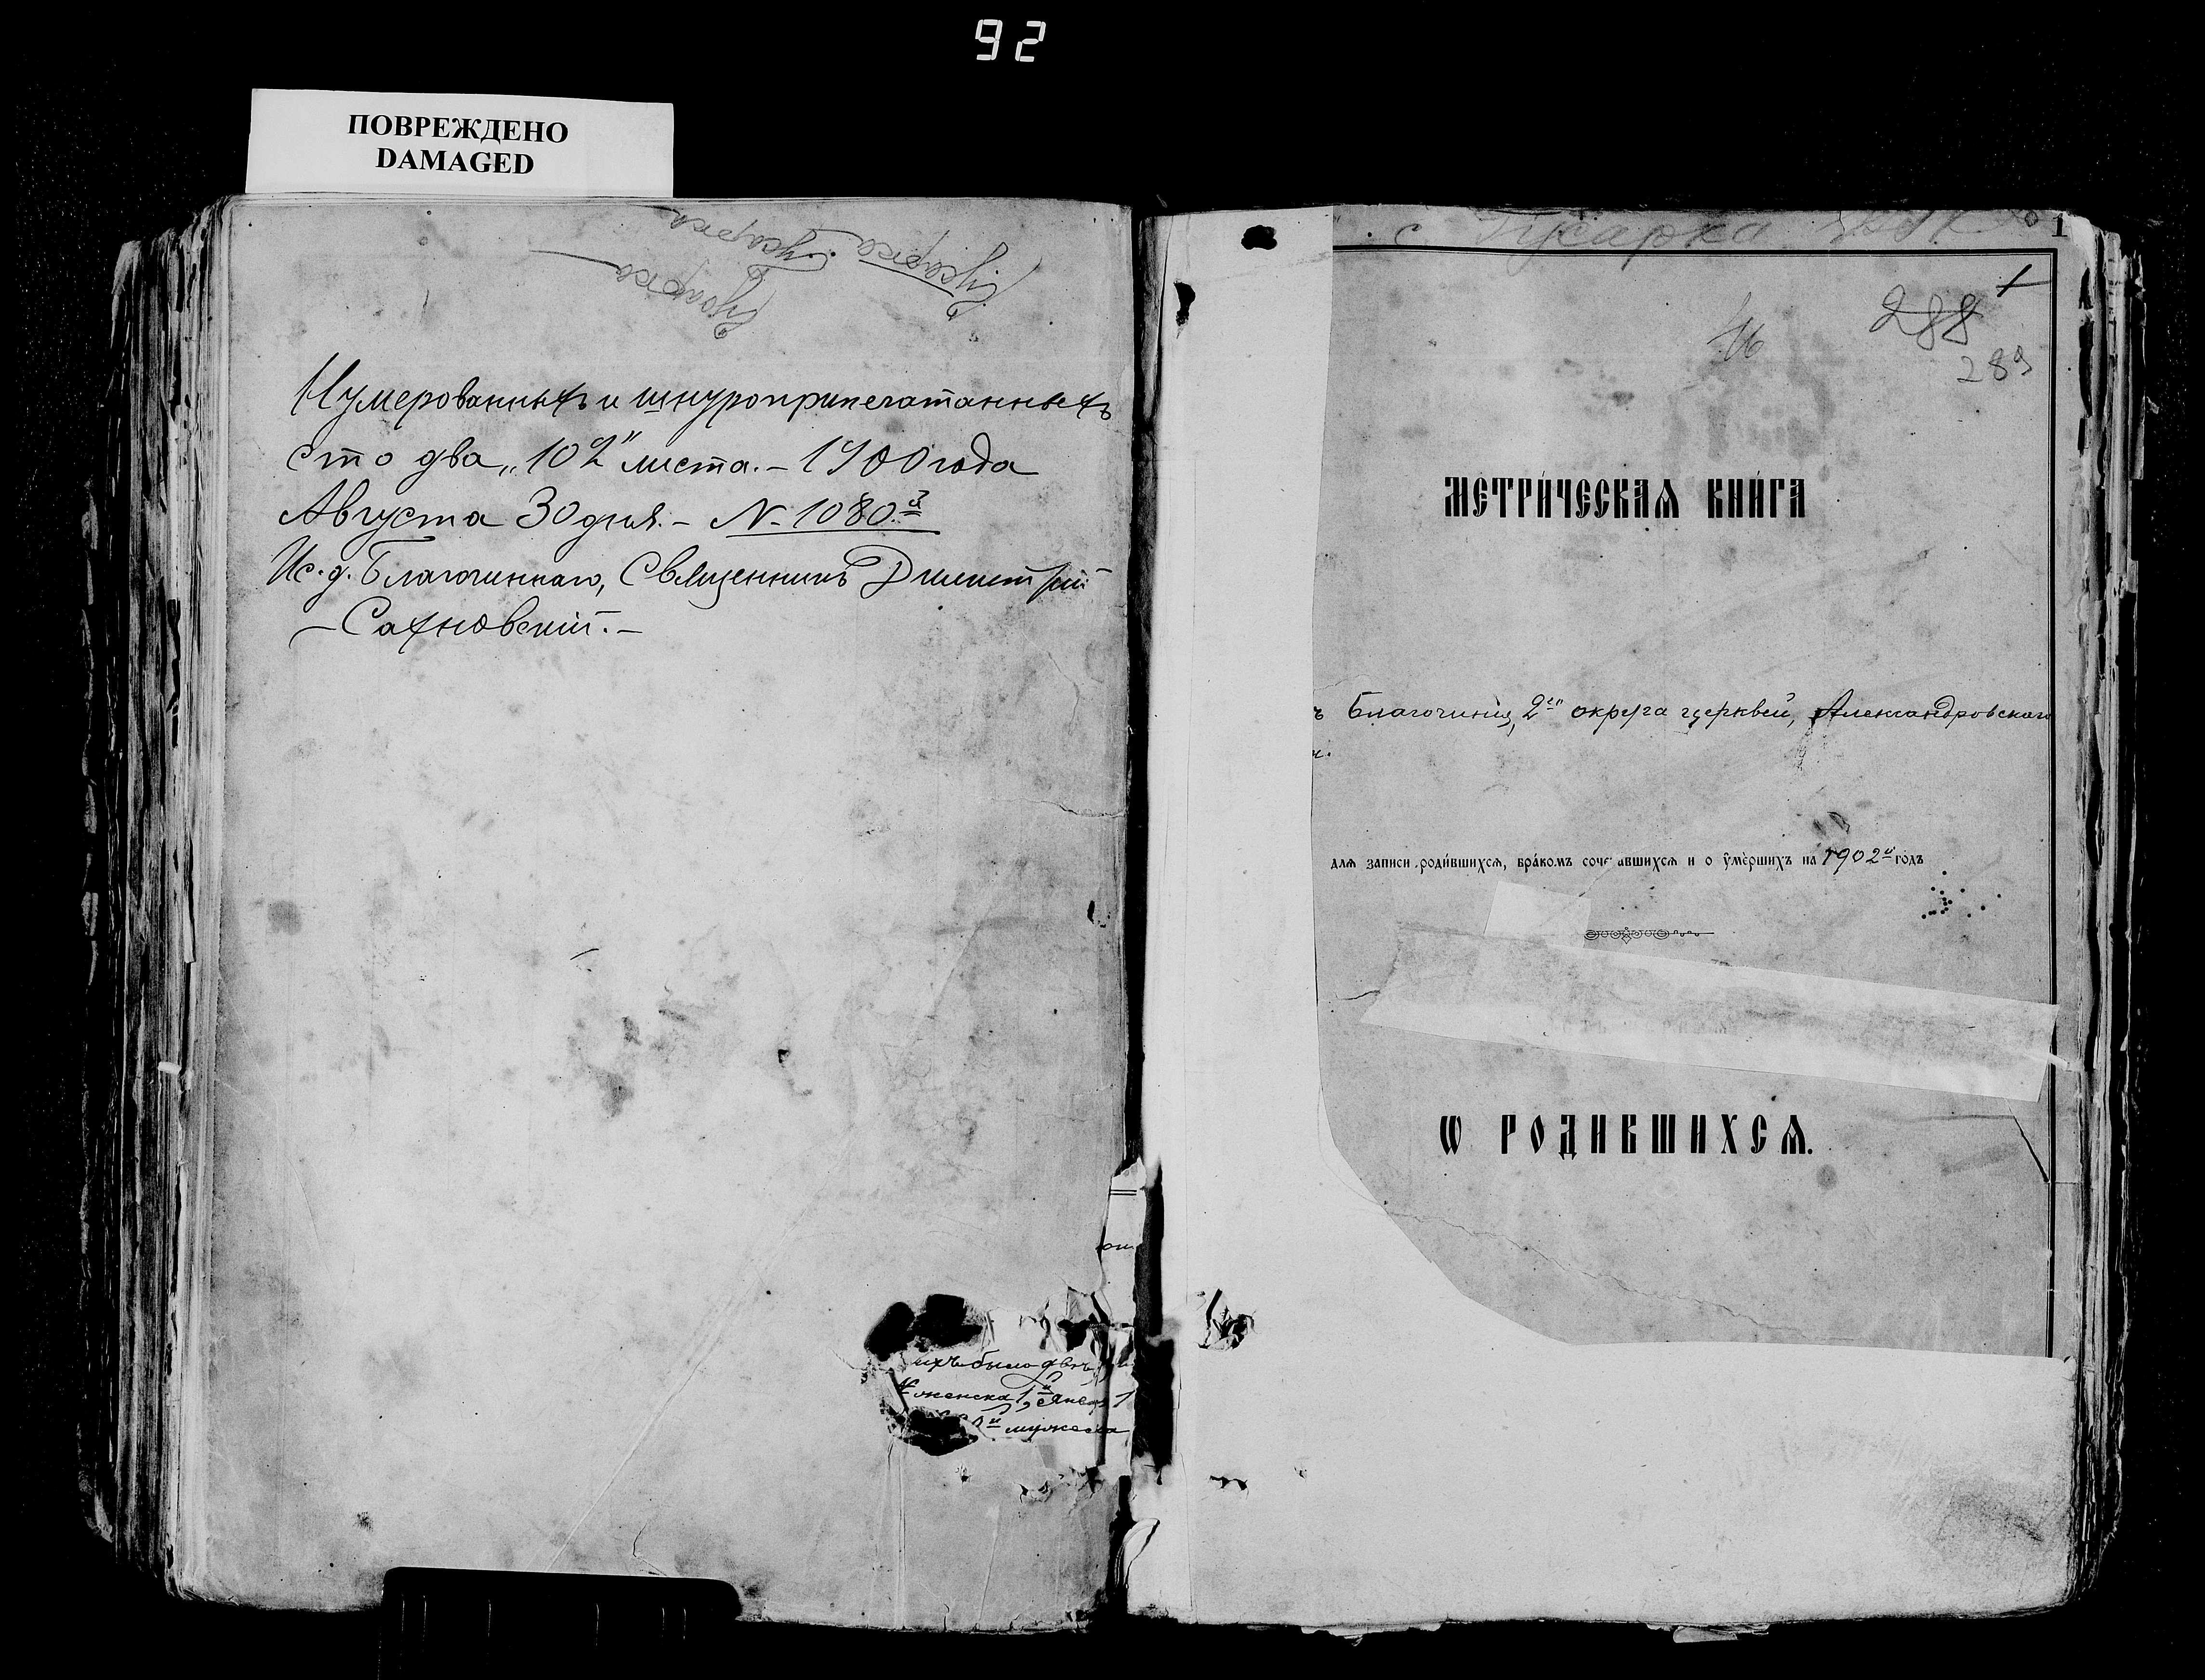 92
ПОВРЕЖДЕНО
DAMAGED
Гусарка Гусарка
Гусарка
Нумерованныхъ и шнуроприпечатанныхъ
сто два „102" листа. – 1900 года
Августа 30 дня. – N. 1080.й
Ис. д. Благочиннаго, Священникъ Димитрій
– Сахновскій. –
ихъ было двѣ
женска 1й Янва
й мужеска
с Гусарка
1
1
288
289
МЕТРИ́ЧЕСКАѦ КНИ́ГА
ъ Благочинія, 2го округа церквей, Александровскаго
для записи роди́вшихсѧ, бра́комъ соче авшихсѧ и о ᲂу҆ме́ршихъ на 1902й годъ
Ѡ РОДИВШИХСѦ.